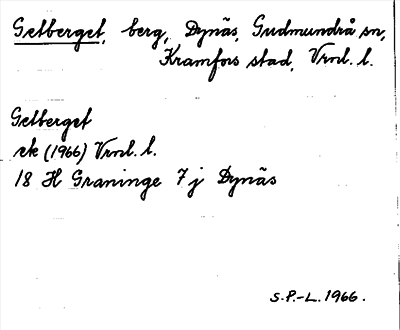 Getberget, berg, Dynäs, Gudmundrå sn,
Kramfors stad, Vrnl. l.
Getberget
ek (1966) Vrnl. l.
18 H Graninge 7 j Dynäs
S.P.-L. 1966.